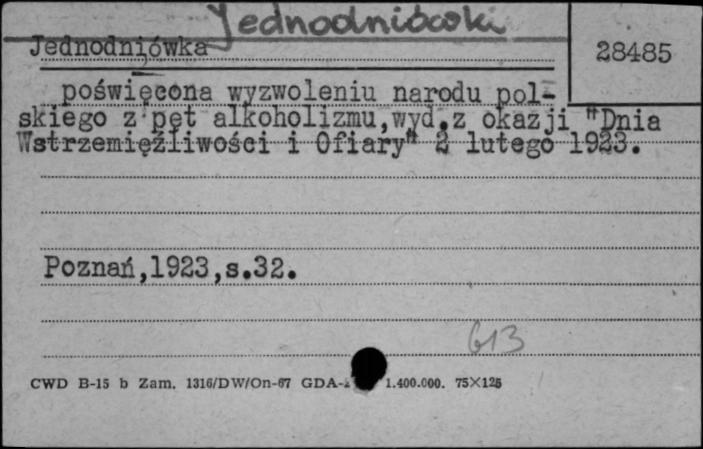 Jednodniówki
Jednodniówka
28485
poświęcona wyzwoleniu narodu pol-
skiego z pęt alkoholizmu,wyd.z okazji "Dnia
Wstrzemięźliwości i Ofiary" 2 lutego 1923.
Poznań,1923,s.32.
613
CWD B-15 b Zam. 1316/DW/On-67 GDA- 1.400.000. 75×125